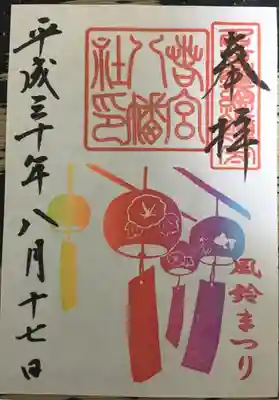 奉拝
若宮
八幡
社印
風鈴まつり
平成三十年八月十七日